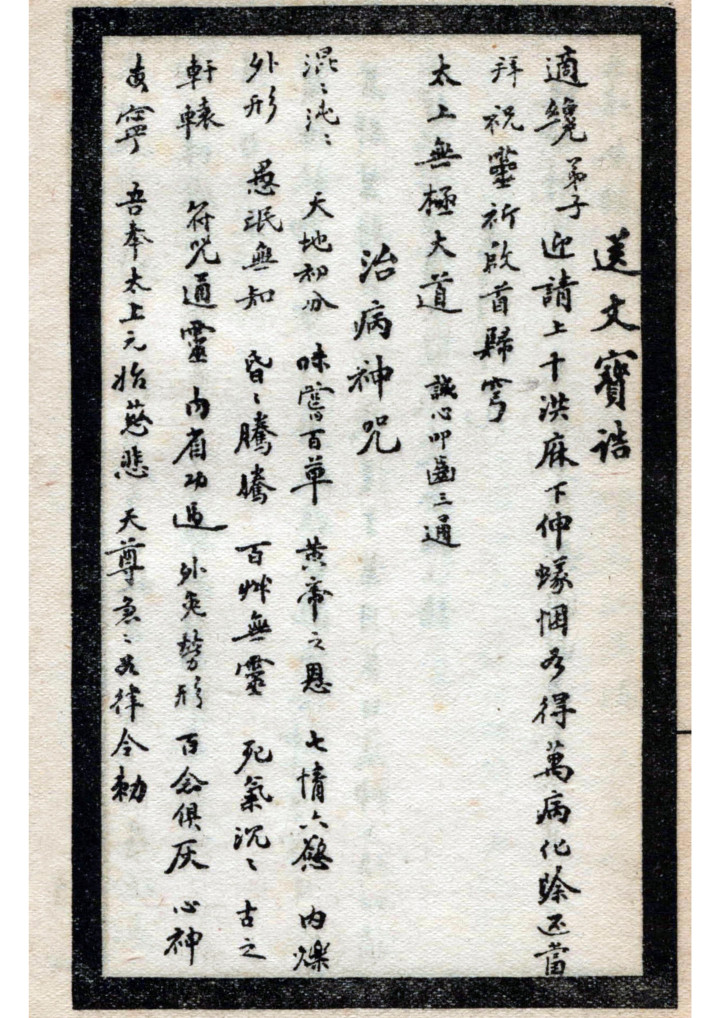 送文寶誥
適纔弟子迎請上十洪麻下伸蟻悃務得萬病化除还當
拜祝靈祈啟首歸穹
太上無極大道 誠心叩齒三通
治病神咒
混〻沌〻 天地初分 味嘗百草 黃帝之恩 七情六慾 內爍
外形 愚氓無知 昏〻騰騰 百艸無靈 死氣沉〻 古之
軒轅 符咒通靈 內省功過 外免勞形 百念俱灰 心神
吾奉太上元始慈悲 天尊急〻如律令勅